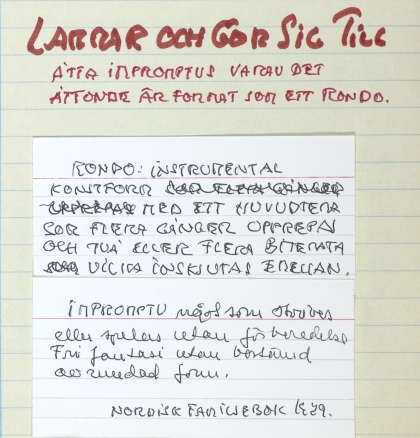 LARRAR OCH GÖR SIG TILL
ÅTTA IMPROMPTUS VARAV DET
ÅTTONDE ÄR FORMAT SOM ETT RONDO.
RONDO: INSTRUMENTAL
KONSTFORM SOM FLERA GÅNGER
UPPREPAS MED ETT HUVUDTEMA
SOM FLERA GÅNGER UPPREPAS
OCH TVÅ ELLER FLERA BITEMATA
VILKA INSKJUTAS EMELLAN.
IMPROMPTU något som skrives
eller spelas utan förberedelse
Fri fantasi utan bestämd
avrundad form.
NORDISK FAMILJEBOK 1879.